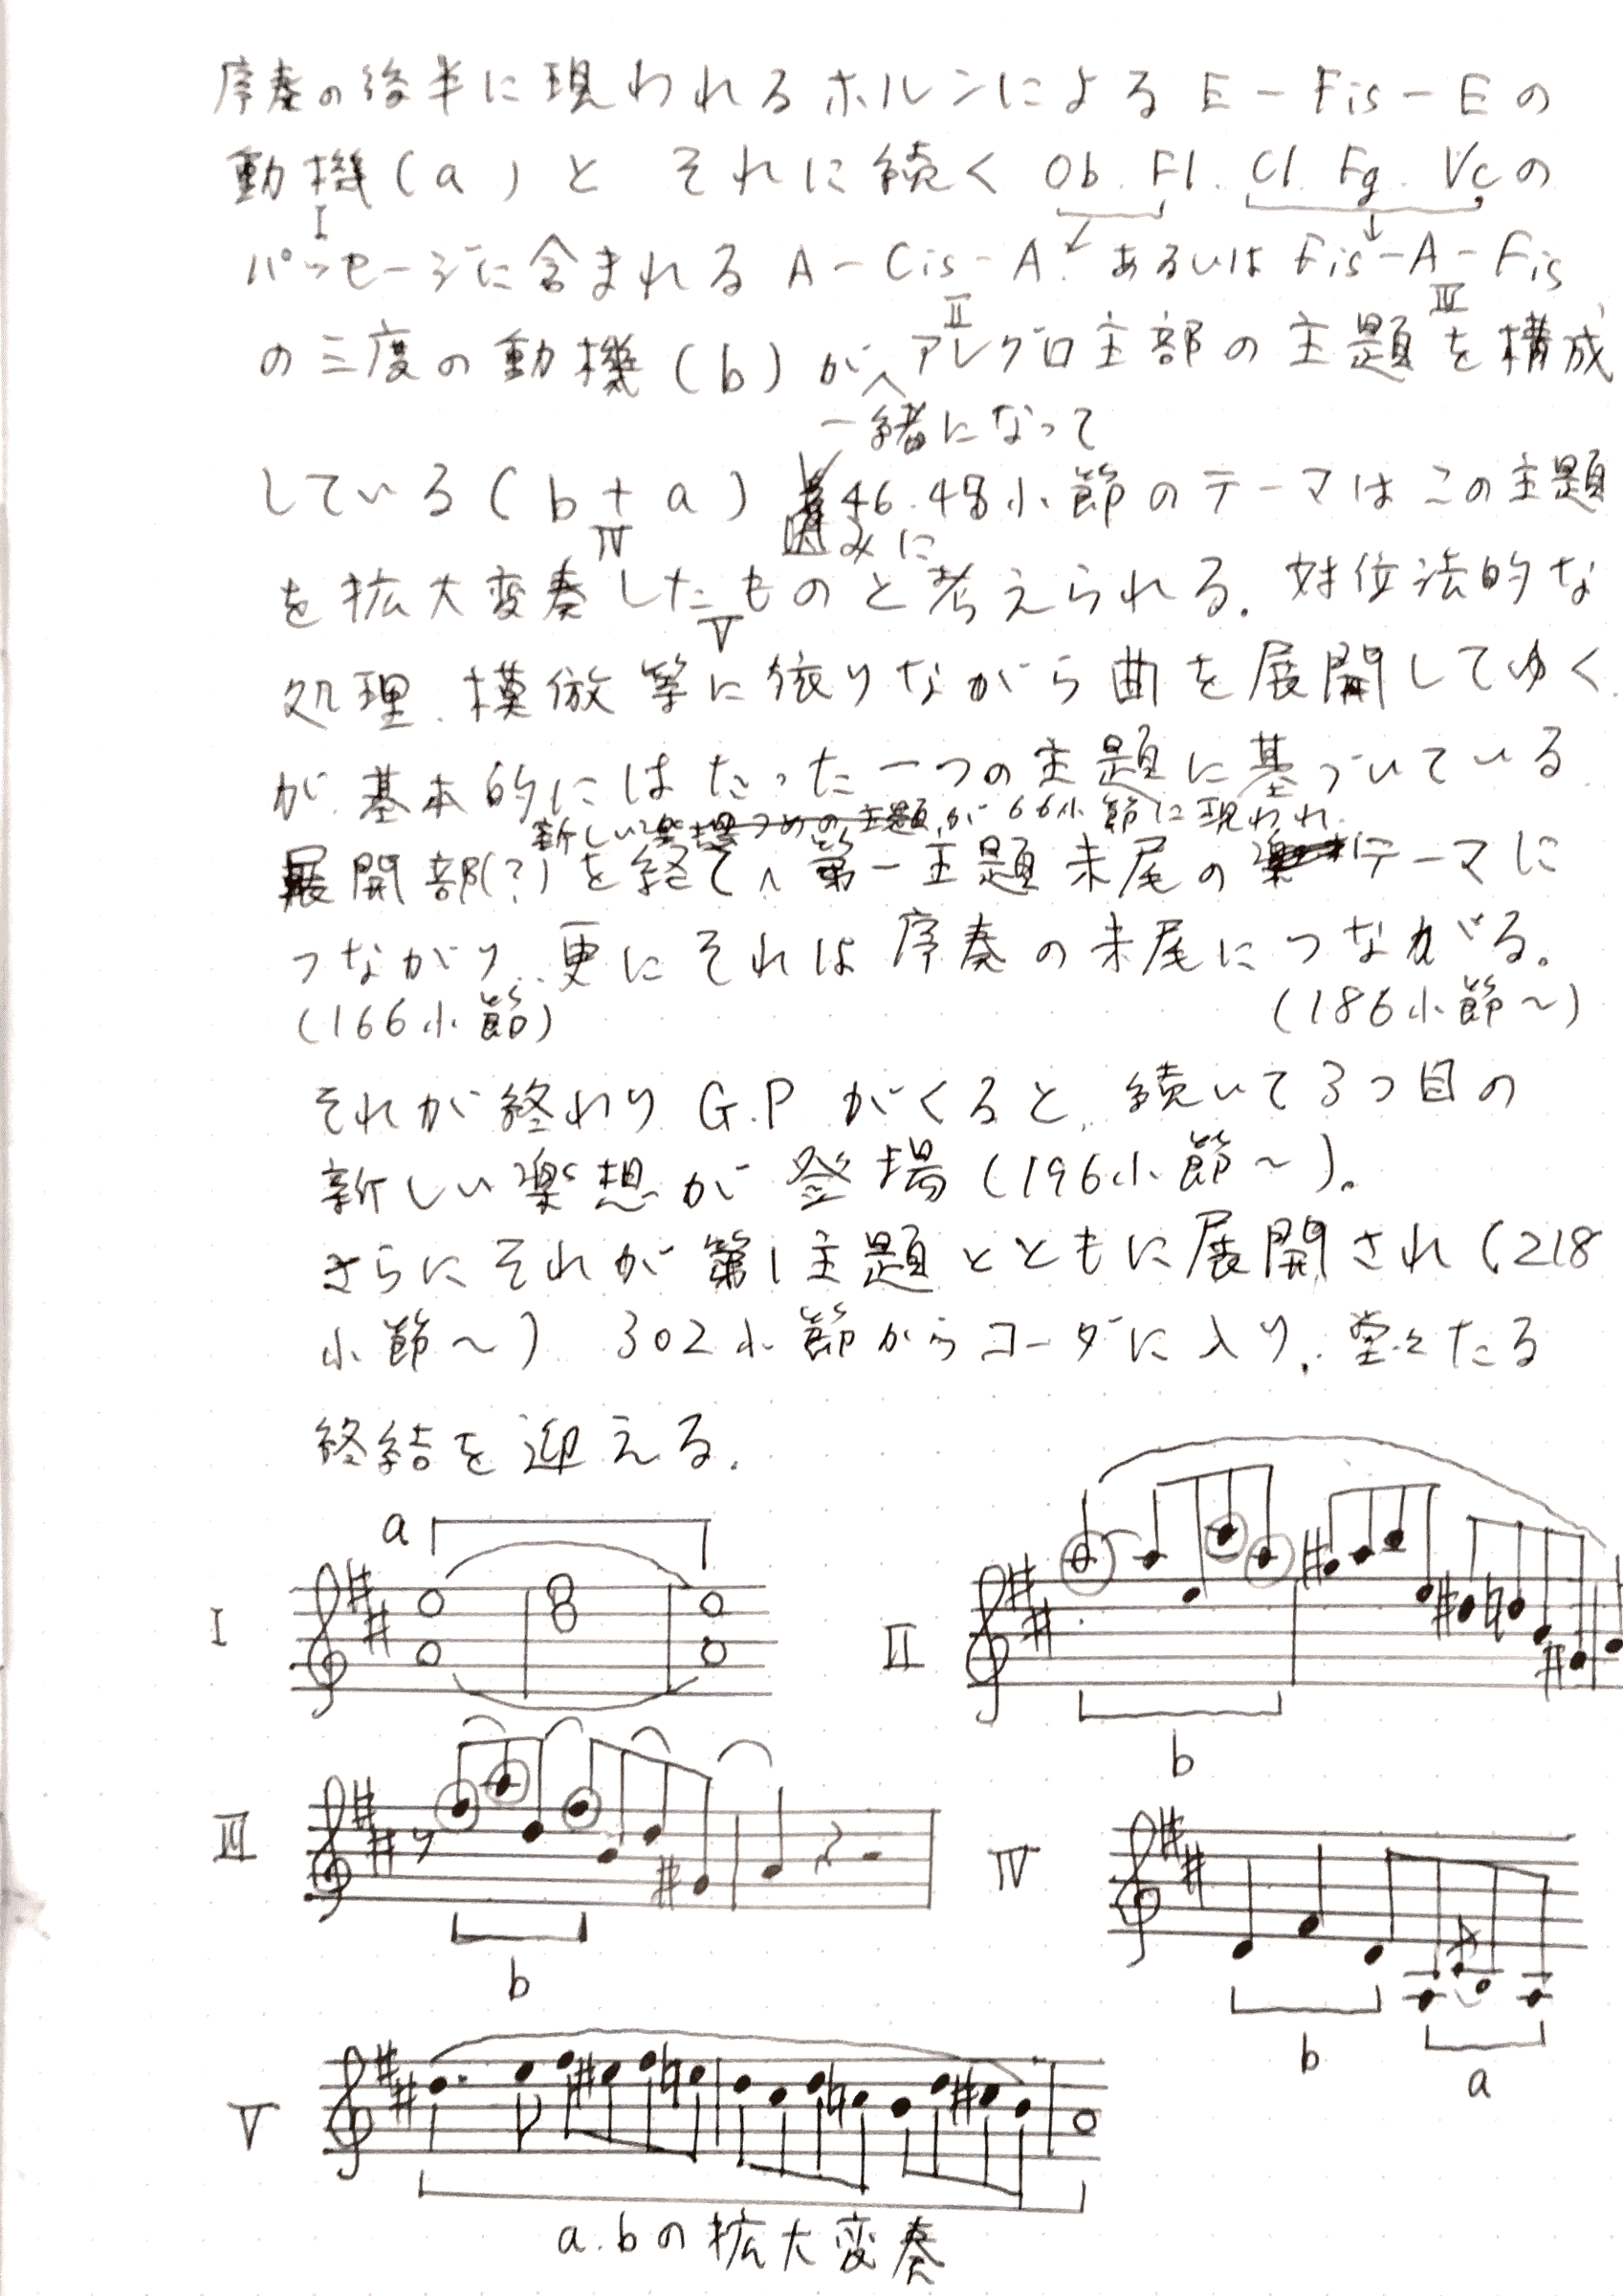 序奏の後半に現われるホルンによる E-Fis-Eの
動機(a)と それに続く Ob. Fl. Cl. Fg. Vcの
I
パッセージに含まれる A-Cis-A あるいは Fis-A-Fis
II III
の三度の動機(b)が アレグロ主部の主題を構成
一緒になって
している(b+a) 46.48小節のテーマはこの主題
IV 因みに
を拡大変奏したものと考えられる. 対位法的な
V
処理. 模倣等に依りながら曲を展開してゆく
が. 基本的にはたった一つの主題に基づいている.
新しい が 66小節に現われ.
展開部(?)を経て 第一主題末尾の テーマに
つながり. 更にそれは序奏の末尾につながる。
(166小節) (186小節～)
それが終わり G.P がくると. 続いて3つ目の
新しい楽想が登場(196小節～)。
さらにそれが第1主題とともに展開され(218
小節～) 302小節からコーダに入り. 堂々たる
終結を迎える.
a
I II
b
III IV
b b a
V
a.bの拡大変奏